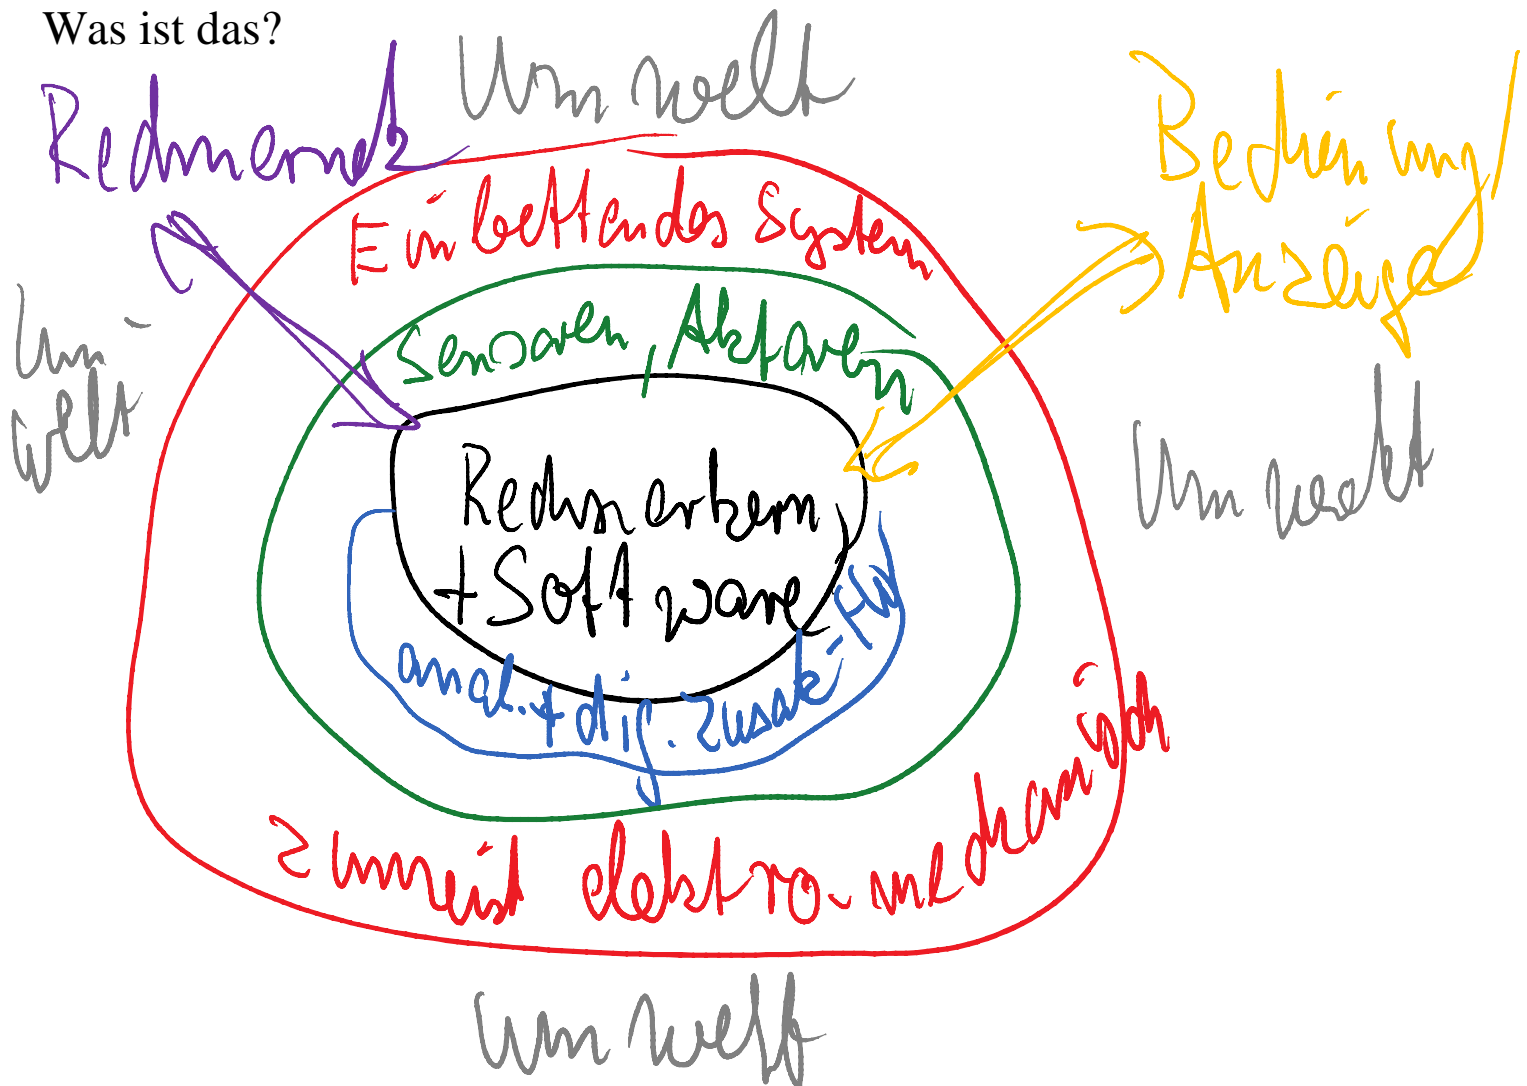 Was ist das?
Umwelt
Rechnernetz
Bedienung/
Anzeige
Einbettendes System
Sensoren, Aktoren
Um-
welt
Umwelt
Rechnerkern
+ Software
anal. + dig. Zusatz-HW
zumeist elektro-mechanisch
Umwelt